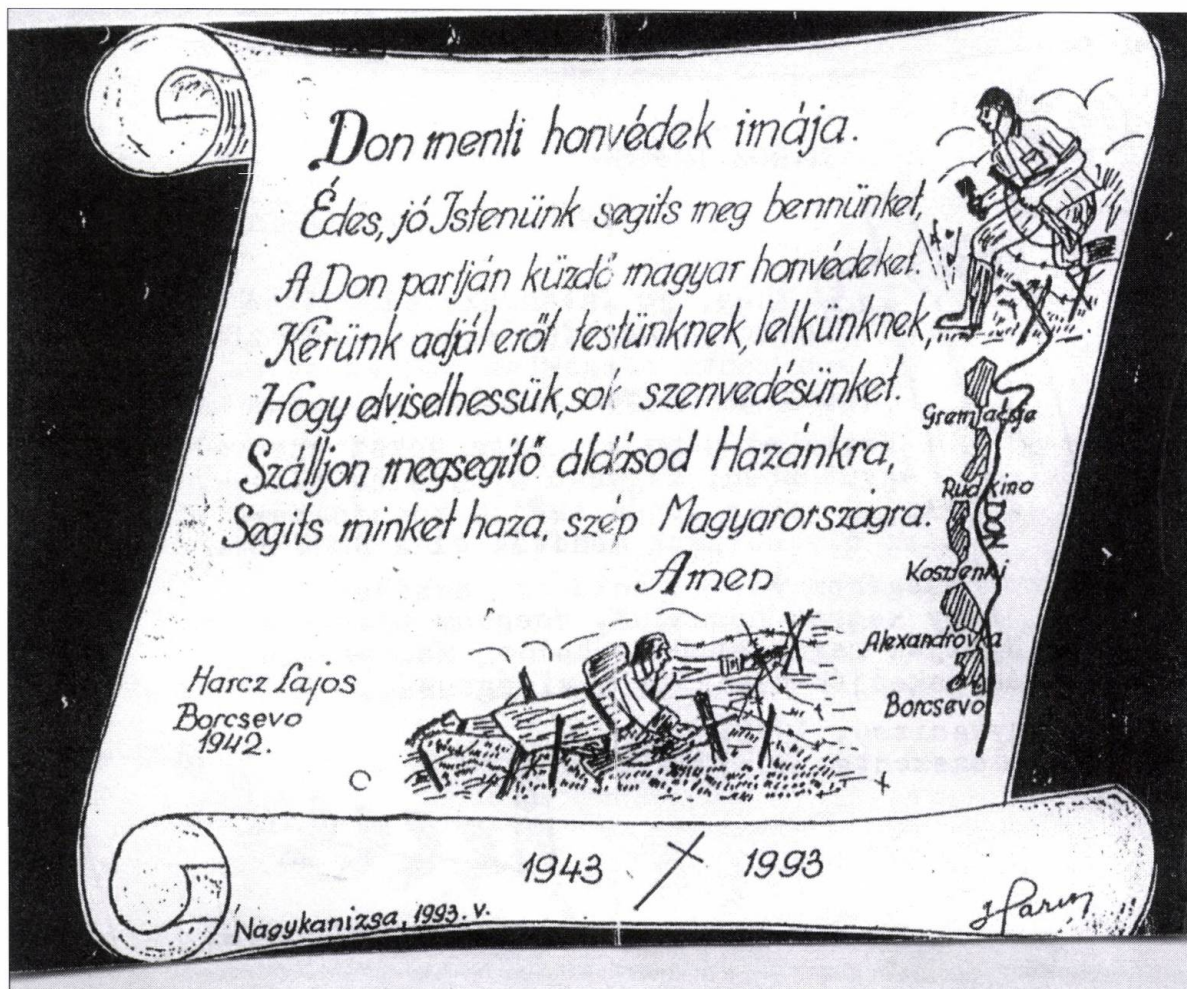 Don menti honvédek imája.
Édes, jó Istenünk segits meg bennünket,
A Don partján küzdő magyar honvédeket.
Kérünk adjál erőt testünknek, lelkünknek,
Hogy elviselhessük, sok szenvedésünket.
Szálljon megsegitő áldásod Hazánkra,
Segits minket haza, szép Magyarországra.
Amen
Gremjacsje
Rudkino
DON
Kosztenki
Alexandrovka
Borcsevo
Harcz Lajos
Borcsevo
1942.
1943 1993
Nagykanizsa, 1993. v.